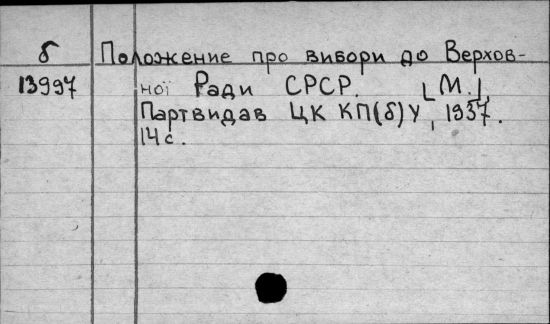 б Положение про вибори до Верхов-
13997 ної Ради СРСР. [М.],
Партвидав ЦК КП(б)У, 1937.
14с.